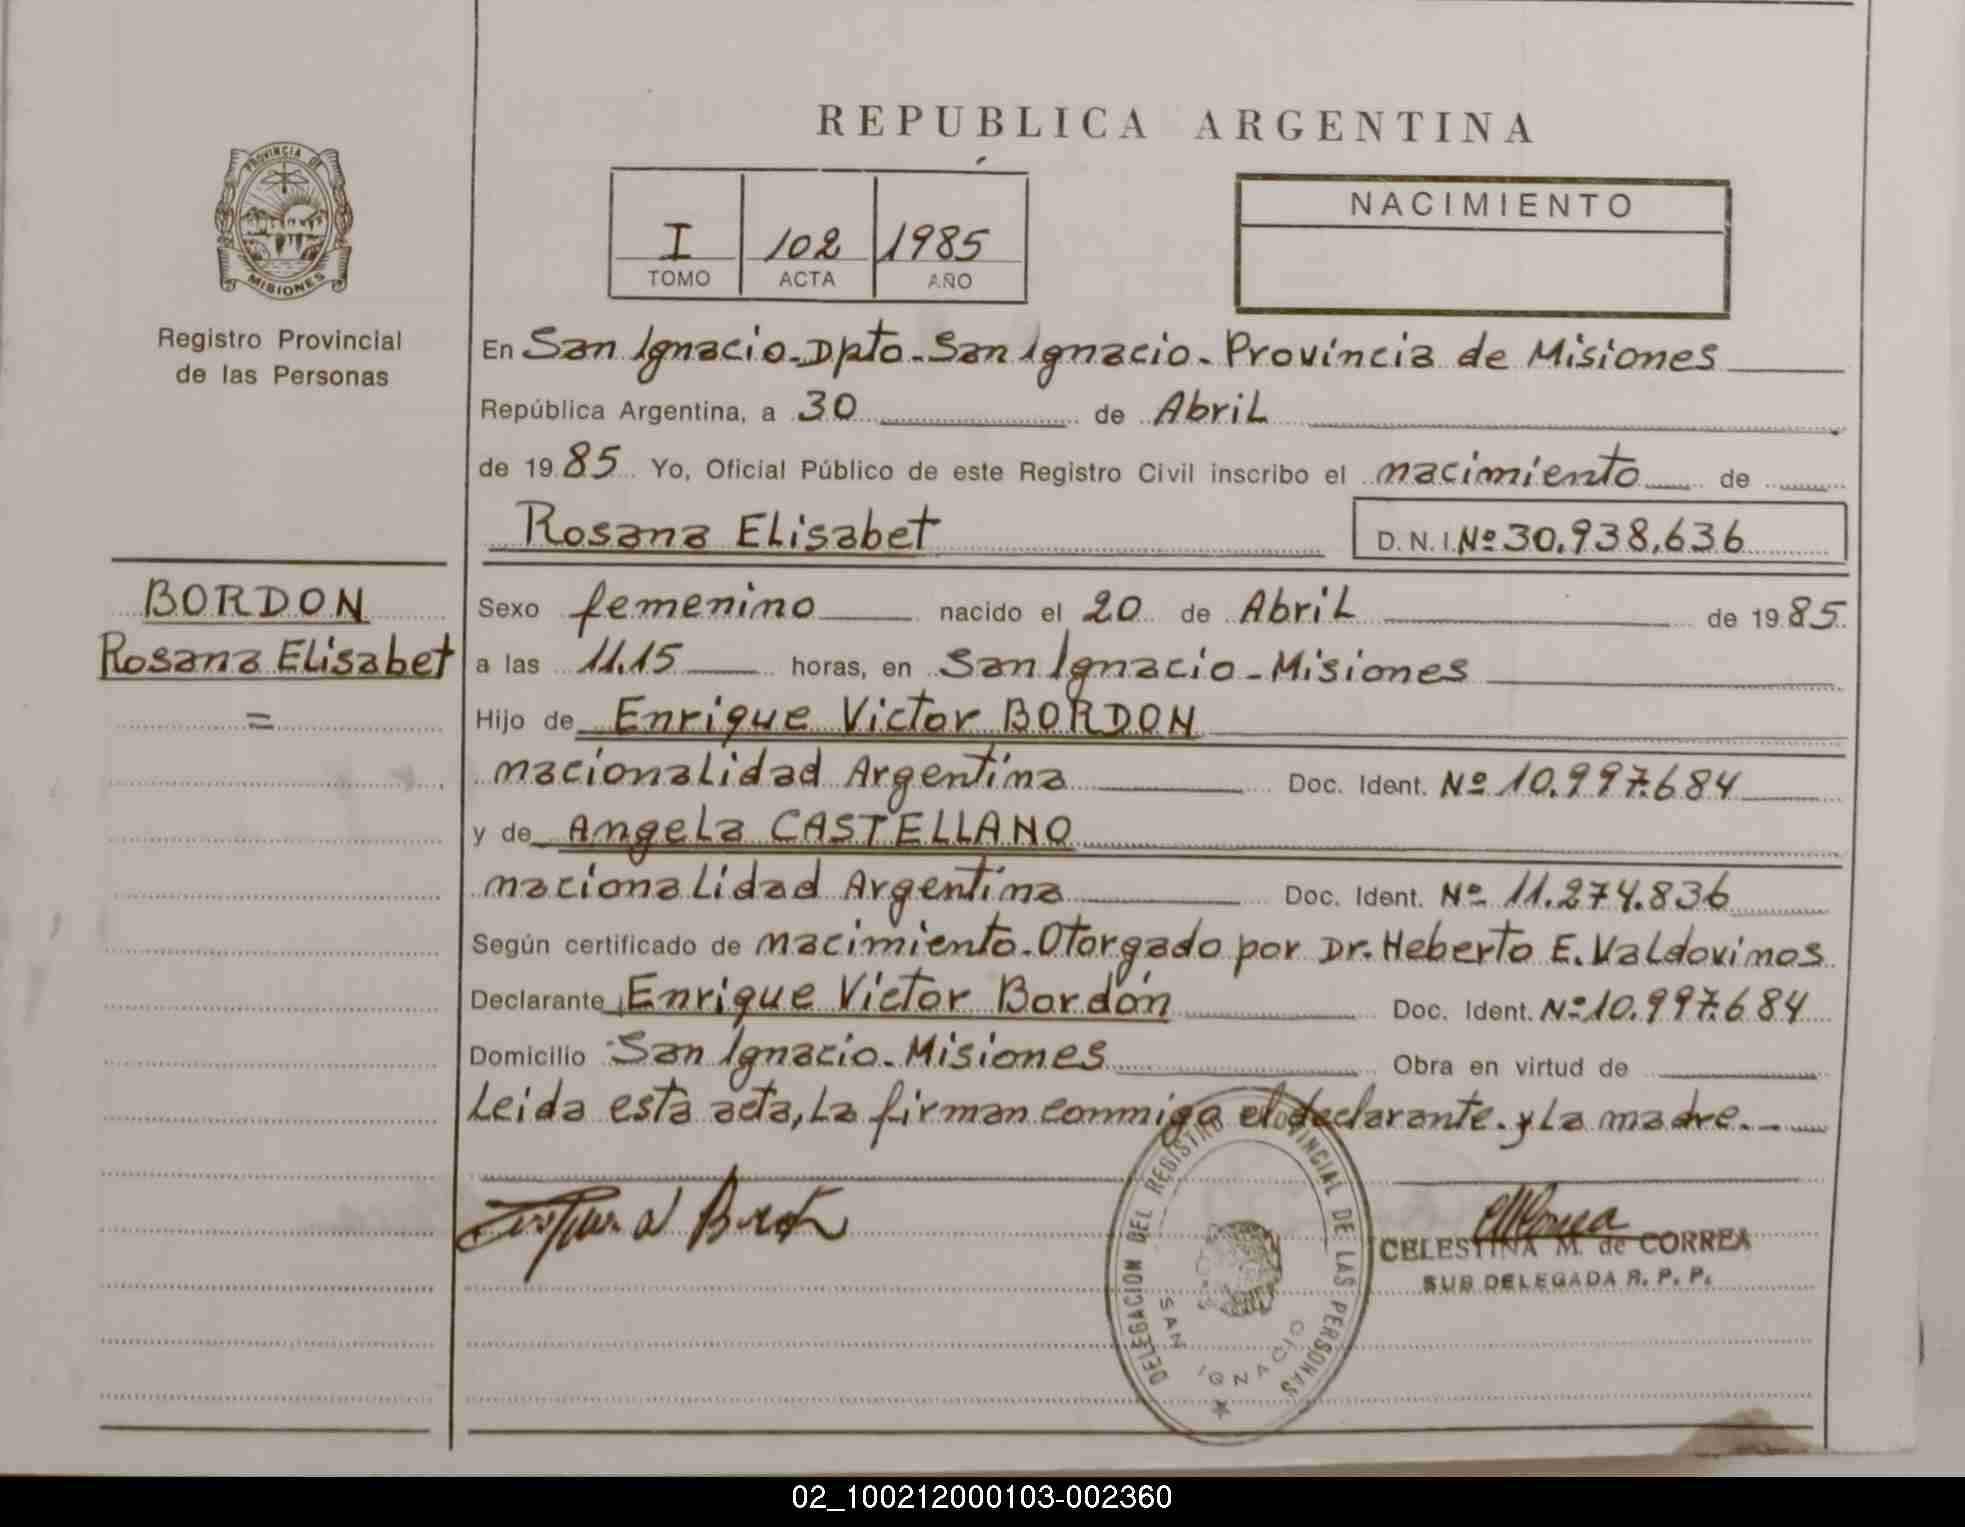 REPUBLICA ARGENTINA
PROVINCIA DE
MISIONES
Registro Provincial
de las Personas
I 102 1985
TOMO ACTA AÑO
NACIMIENTO
En San Ignacio-Dpto-San Ignacio-Provincia de Misiones
República Argentina, a 30 de Abril
de 1985 Yo, Oficial Público de este Registro Civil inscribo el nacimiento de
Rosana Elisabet D.N.I. Nº 30.938.636
BORDON
Rosana Elisabet
=
Sexo femenino nacido el 20 de Abril de 1985
a las 11.15 horas, en San Ignacio-Misiones
Hijo de Enrique Victor BORDON
nacionalidad Argentina Doc. Ident. Nº 10.997.684
y de Angela CASTELLANO
nacionalidad Argentina Doc. Ident. Nº 11.274.836
Según certificado de nacimiento-Otorgado por Dr. Heberto E. Valdovinos
Declarante Enrique Víctor Bordón Doc. Ident. Nº 10.997.684
Domicilio San Ignacio-Misiones Obra en virtud de
Leida esta acta, la firman conmigo el declarante y la madre.-
DELEGACION DEL REGISTRO PROVINCIAL DE LAS PERSONAS
SAN IGNACIO
CELESTINA M. de CORREA
SUB DELEGADA R. P. P.
02_100212000103-002360